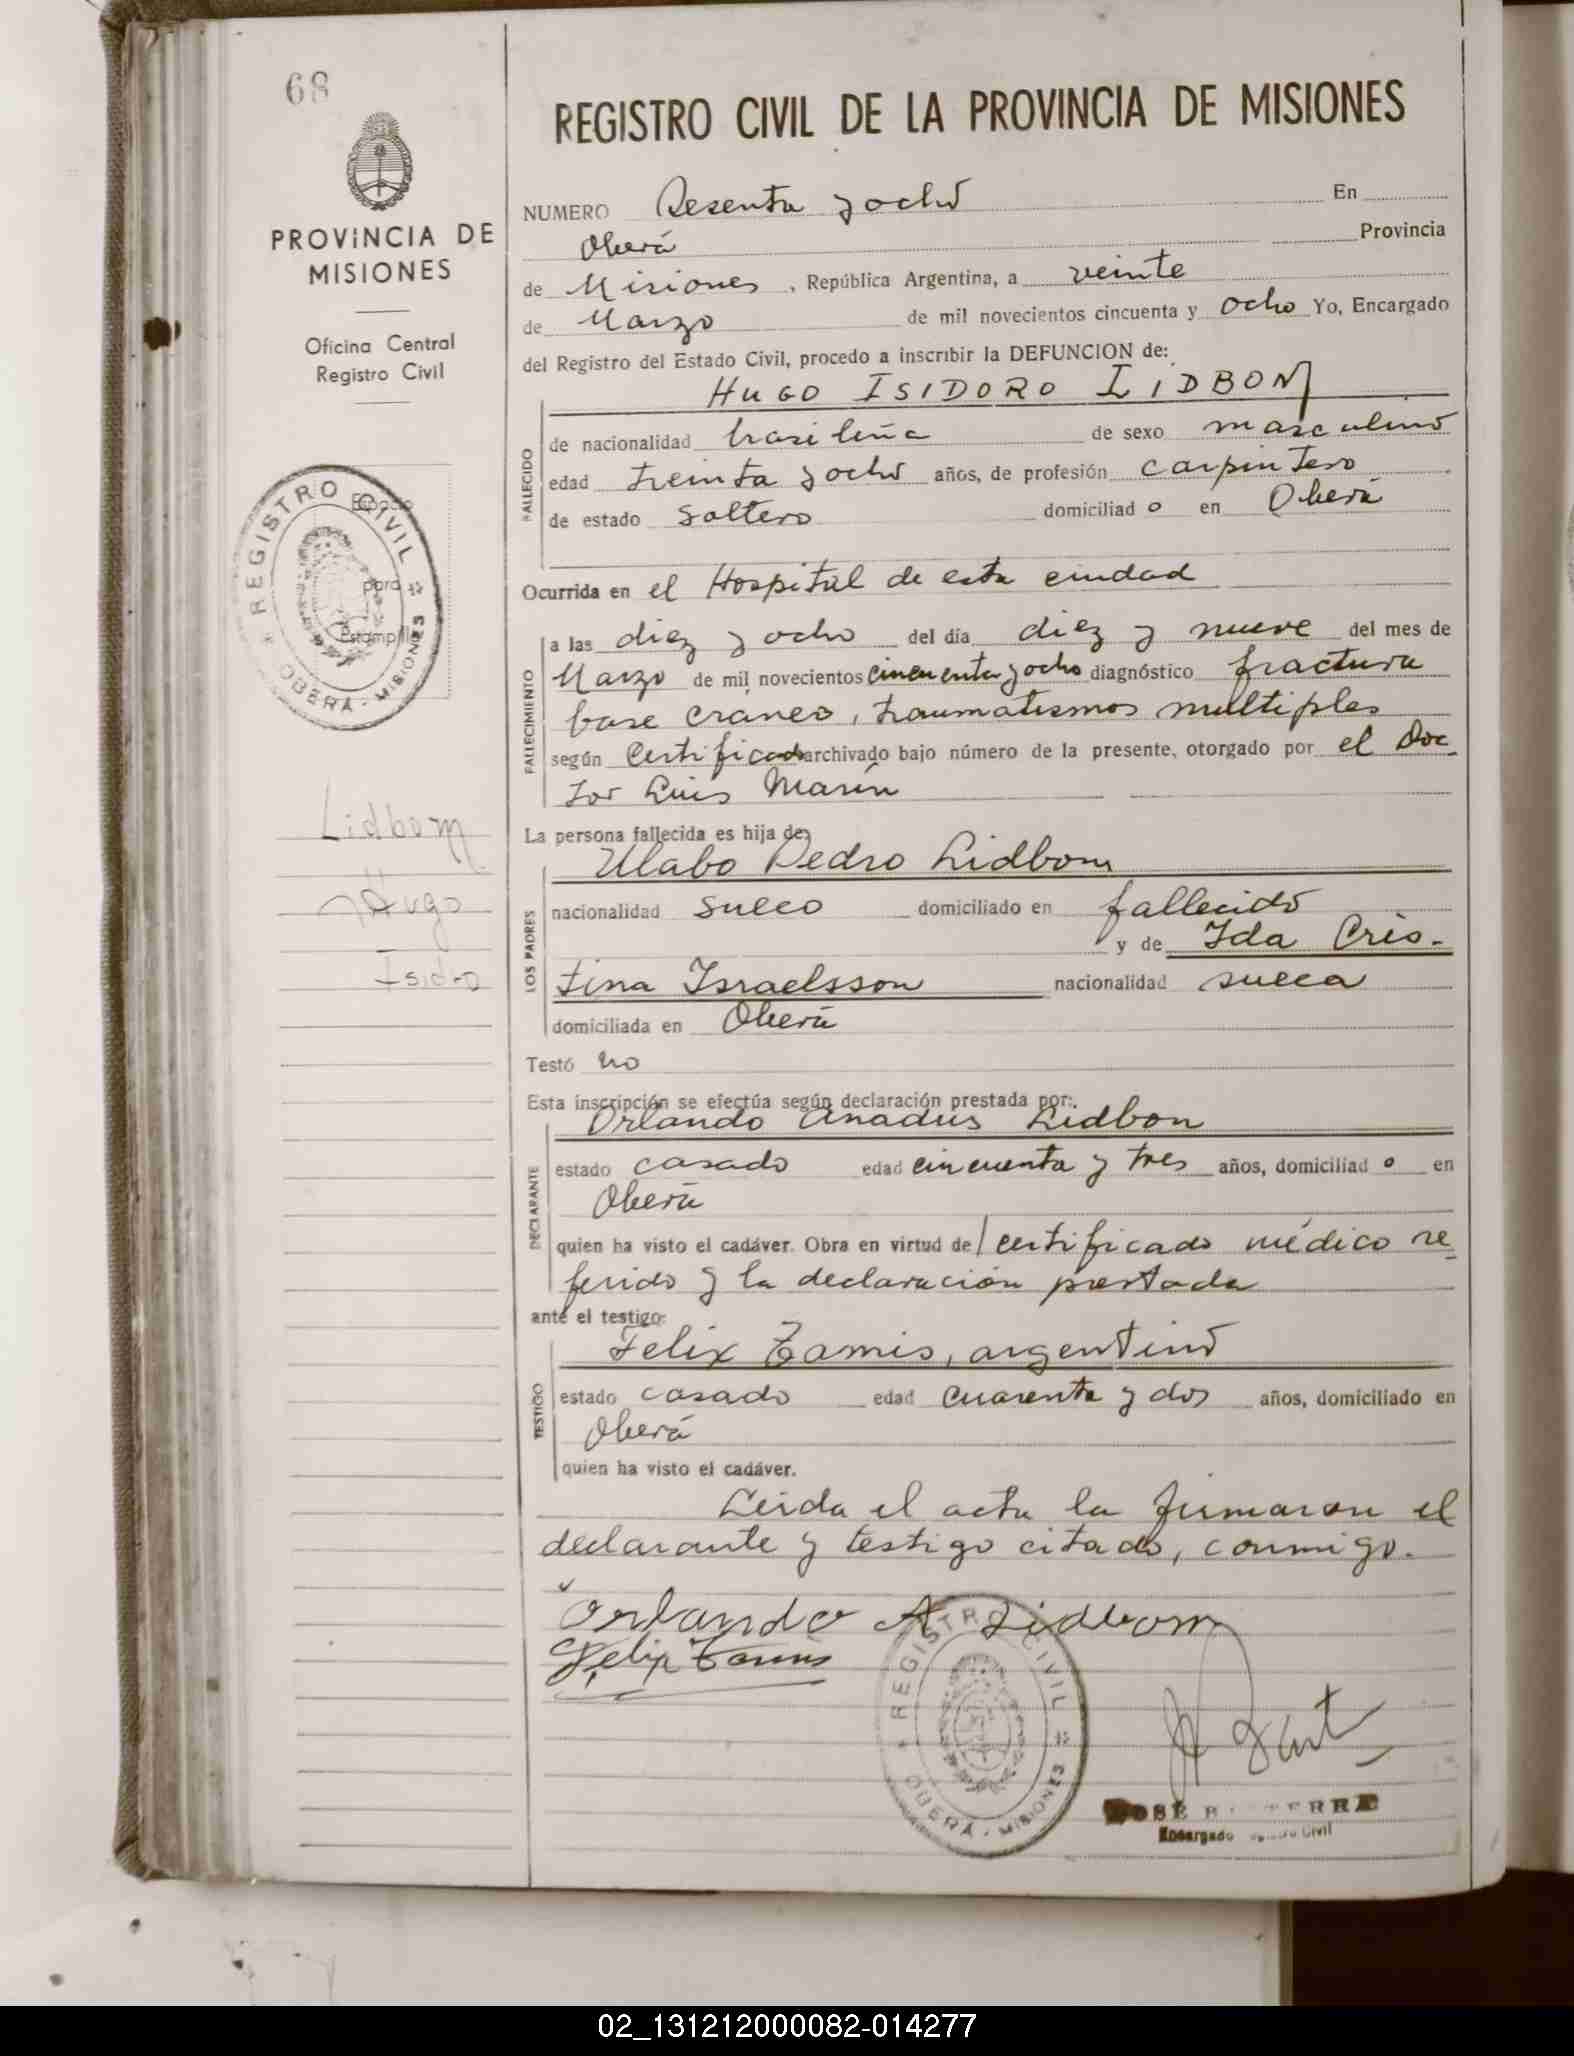 68
PROVINCIA DE
MISIONES
Oficina Central
Registro Civil
Espacio
para
Estampilla
REGISTRO CIVIL
OBERÁ - MISIONES
Lidbom
Hugo
Isidro
REGISTRO CIVIL DE LA PROVINCIA DE MISIONES
NUMERO Sesenta y ocho En
Oberá Provincia
de Misiones, República Argentina, a veinte
de Marzo de mil novecientos cincuenta y ocho Yo, Encargado
del Registro del Estado Civil, procedo a inscribir la DEFUNCION de:
HUGO ISIDORO LIDBOM
FALLECIDO
de nacionalidad brasileña de sexo masculino
edad treinta y ocho años, de profesión carpintero
de estado soltero domiciliad o en Oberá
Ocurrida en el Hospital de esta ciudad
FALLECIMIENTO
a las diez y ocho del día diez y nueve del mes de
Marzo de mil novecientos cincuenta y ocho diagnóstico fractura
base craneo, traumatismos multiples
según certificado archivado bajo número de la presente, otorgado por el Doc-
tor Luis Marín
La persona fallecida es hija de:
LOS PADRES
Ulabo Pedro Lidbom
nacionalidad sueco domiciliado en fallecido
y de Ida Cris-
tina Israelsson nacionalidad sueca
domiciliada en Oberá
Testó no
Esta inscripción se efectúa según declaración prestada por:
DECLARANTE
Orlando Anadus Lidbon
estado casado edad cincuenta y tres años, domiciliad o en
Oberá
quien ha visto el cadáver. Obra en virtud de certificado médico re-
ferido y la declaración prestada
ante el testigo:
TESTIGO
Felix Zamis, argentino
estado casado edad cuarenta y dos años, domiciliado en
Oberá
quien ha visto el cadáver.
Leida el acta la firmaron el
declarante y testigo citado, conmigo.
Orlando A Lidbom
Felix Zamis
REGISTRO CIVIL
OBERÁ - MISIONES
JOSÉ
Encargado Civil
02_131212000082-014277